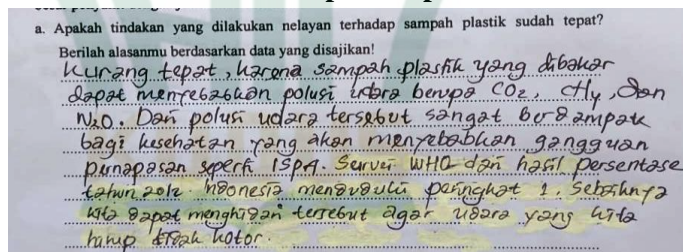 a. Apakah tindakan yang dilakukan nelayan terhadap sampah plastik sudah tepat?
Berilah alasanmu berdasarkan data yang disajikan!
Kurang tepat, karena sampah plastik yang dibakar
dapat menyebabkan polusi udara berupa CO2, CH4, dan
N2O. Dan polusi udara tersebut sangat berdampak
bagi kesehatan yang akan menyebabkan gangguan
pernapasan seperti ISPA. Survei WHO dan hasil persentase
tahun 2012. Indonesia menduduki peringkat 1. Sebaiknya
kita dapat tersebut agar udara yang kita
hirup tidak kotor.